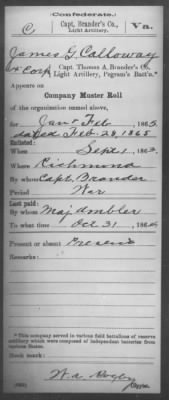 (Confederate.)
C | Capt. Brander's Co., Light Artillery. | Va.
James G Calloway
4 Corp, Capt. Thomas A. Brander's Co.,
Light Artillery, Pegram's Batt'n.*
Appears on
Company Muster Roll
of the organization named above,
for Jan & Feb, 1865.
dated Feb. 28, 1865
Enlisted:
When Sept 1, 186
Where Richmond
By whom Capt. Brander
Period War
Last paid:
By whom Maj Ambler
To what time Oct 31, 1864
Present or absent Present
Remarks:
* This company served in various field battalions of reserve
artillery which were composed of independent batteries from
various States.
Book mark:
W. A.
Copyist.